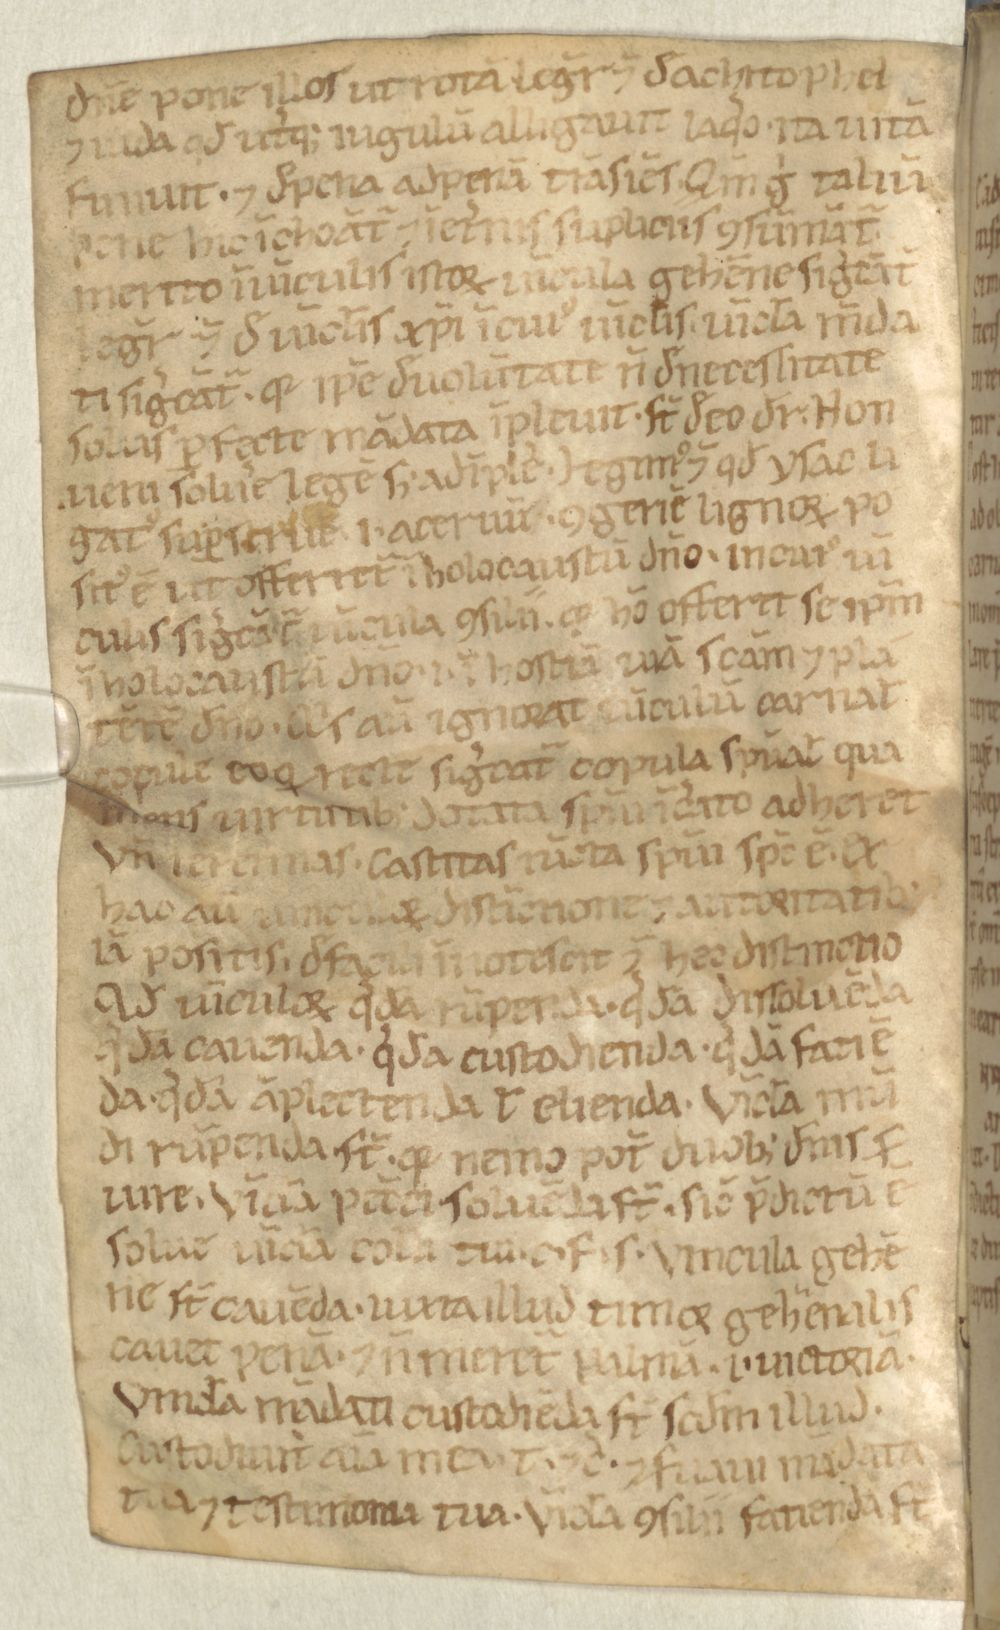 dn̄e pone illos ut rotā leg̃r ⁊̄ d̄ achitophel
⁊ iuda qd̄ ut̃q; iugulū alligauit laq̊o · ita uitā
finiuit · ⁊ d̄ pena ad penā trāsiēs. Qm̄ g̊ taliū
pene hic īchoāt̃ ⁊ īet̃nis supliciis ꝯsūmāt̃
merito ī uīculis istoꝝ uīcula gehēne sig̊cāt̃
leg̃r ⁊̄ d̄ uīcl̄is xp̄i ī cui⁹ uīcl̄is · uīcl̄a māda
ti sig̊cāt̃ · qꝛ ip̄e d̄ uolūtate n̄ d̄ necessitate
solus ꝑfecte mādata īpleuit · st̄ d̄ eo dr̄ · Non
ueni soluer̄e legē s; adīplēr̄e · legim⁹ ⁊̄ qd̄ ysac li
gat⁹ suꝑ struē · i · aceruū · ꝯgeriē lignoꝝ po
sit⁹ ē ut offerret̃ ī holocaustū dn̄o · in cui⁹ uī
culis sig̊cāt̃ uīcula ꝯsilii · qꝛ hō offert se ip̄m
ī holocaustū dn̄o · ī hostiā uiuā scām ⁊ pla
cētē dn̄o · aū ignorat uīculū carnal̄
copule eoq; recte sig̊cat̃ copula sp̄ual̄ qua
mens uirtutib; dotata sp̄ui īcreato adheret
Vn̄ ieremias · castitas iūcta sp̄ui sp̄c ē · Ex
hac aū distīctione ⁊ auctoritatib;
iā positis · d̄ facili īnotescit ⁊̄ hec distinctio
Qd̄ uīculoꝝ q̄dā rūpenda · q̄dā dissoluēda
q̄dā cauenda · q̄dā custodienda · q̄dā faciē
da · q̄dā āplectenda ł eligenda · Vīcl̄a mū
di rūpenda st̄ · qꝛ nemo pot̄ duob; dn̄is s̄
uire · Vīcl̄a pctī soluēda st̄ · sic̄ p̄dictū ē
solue uīcl̄a coll̄i tui · c · f · s · Vincula gehē
ne st̄ cauēda · iuxta illud timoꝛ gehēnalis
cauet penā · ⁊ n̄ meret̃ palmā · i · uictoriā ·
Vincl̄a mādati custodiēda st̄ scdm illud ·
Custodiuit aīa mea · t · ⁊c̄ · ⁊ s̄uaui mādata
tua ⁊ testimonia tua · Vīcl̄a ꝯsilii facienda st̄